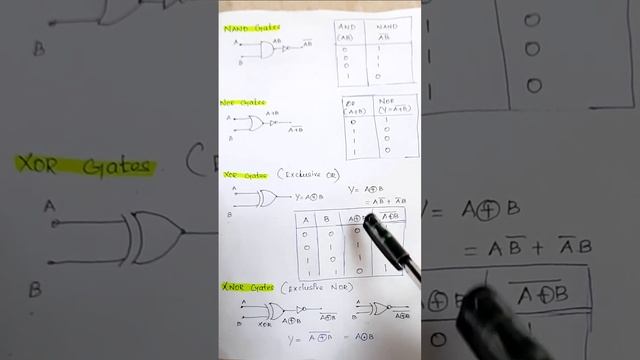 NAND Gates
A
B
AB
A̅B̅
AND (AB)
NAND A̅B̅
0 1
0 1
0 1
1 0
NOR Gates
A
B
A+B
A̅+̅B̅
OR (A+B)
NOR (Y=A+B)
0 1
1 0
1 0
1 0
XOR Gates (Exclusive OR)
A
B
Y = A⊕B
Y = A⊕B
= AB̅ + A̅B
A B A⊕B A̅⊕̅B̅
0 0 0
0 1 1
1 0 1
1 1 0 1
XNOR Gates (Exclusive NOR)
A
B
XOR
A⊕B
A̅⊕̅B̅
A
B
A̅⊕̅B̅
Y = A̅⊕̅B̅ = A⊙B